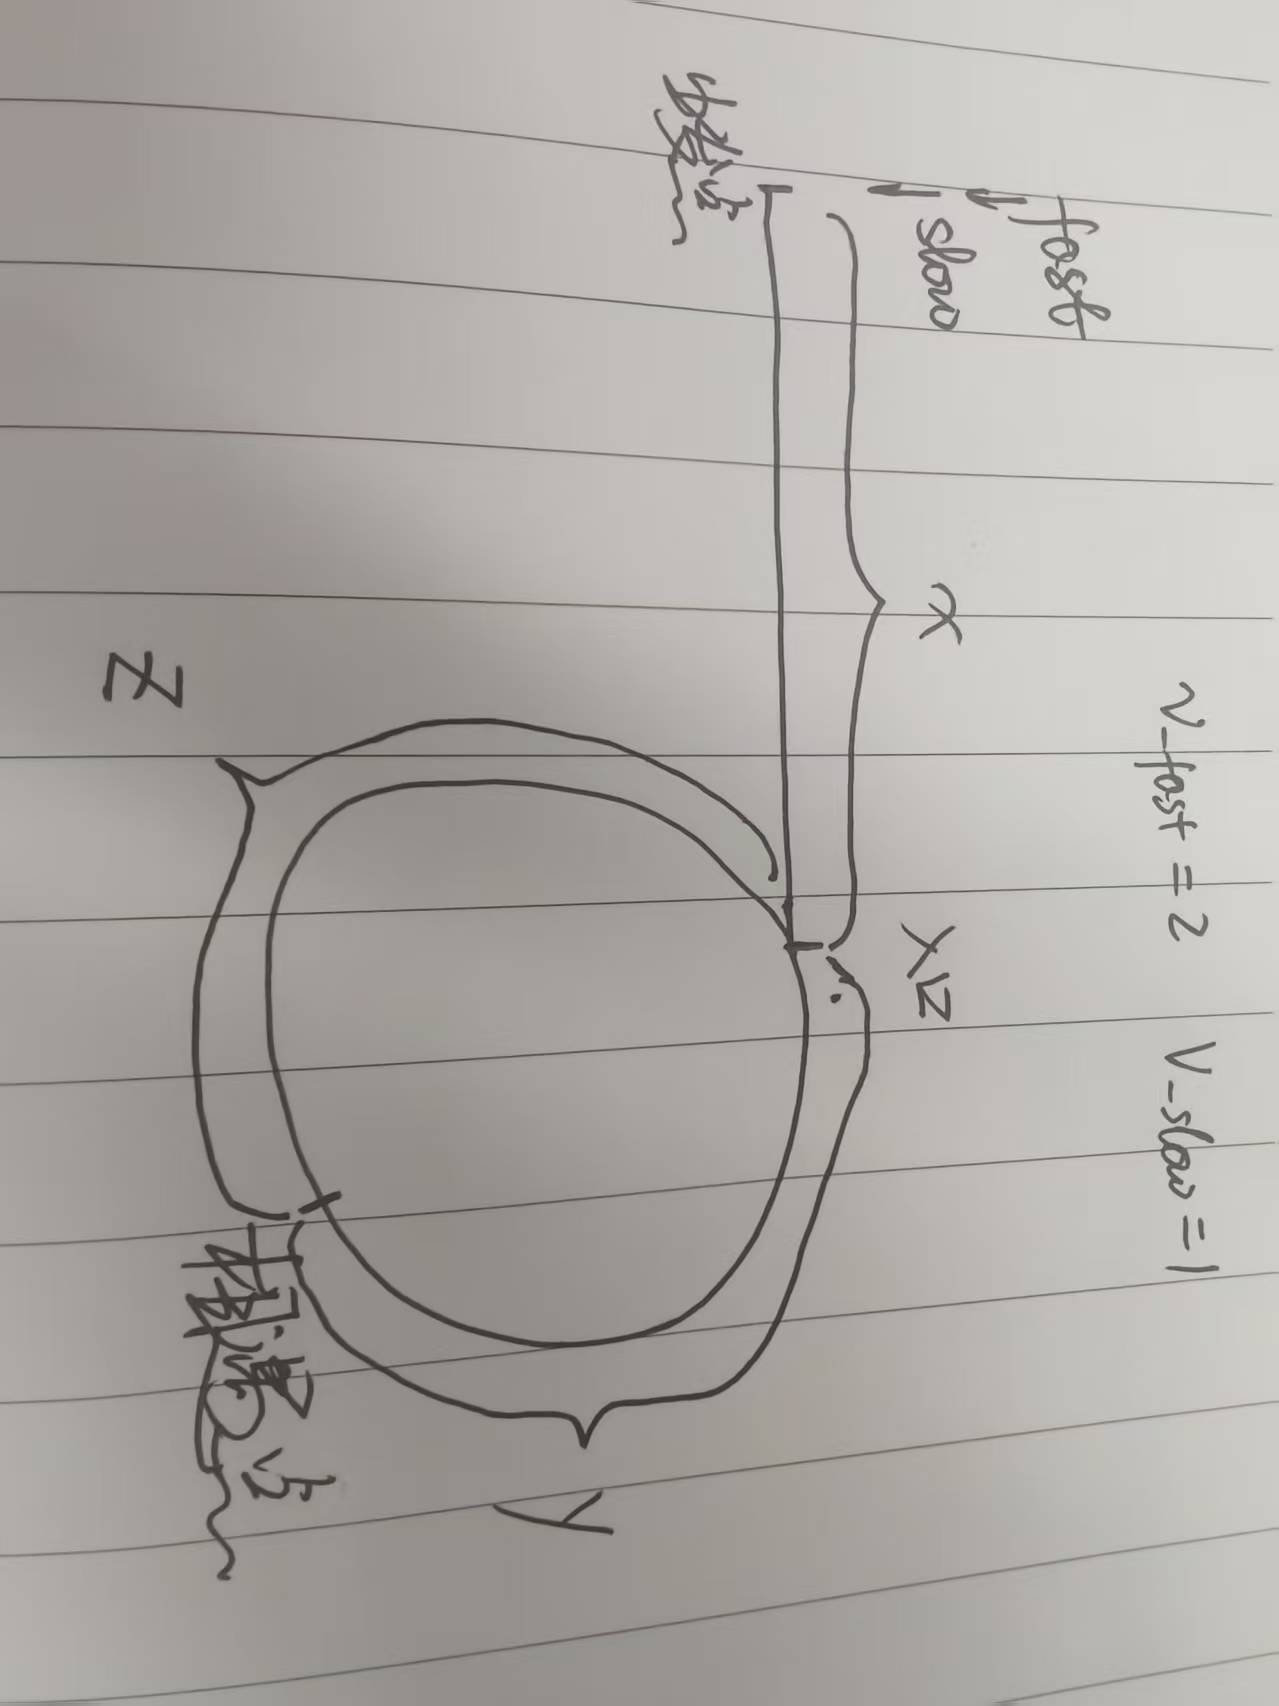 v_fast = 2 V_slow = 1
fast
slow
x
入口
出发点
y
相遇点
Z